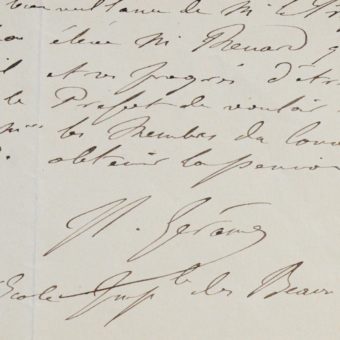 bienveillance de M. le Pr
élève M. Renard q
et ses progrès d'êtr
le Préfet de vouloir
les Membres du Cons
obtenir la pension
Gérome
Ecole Imple des Beaux